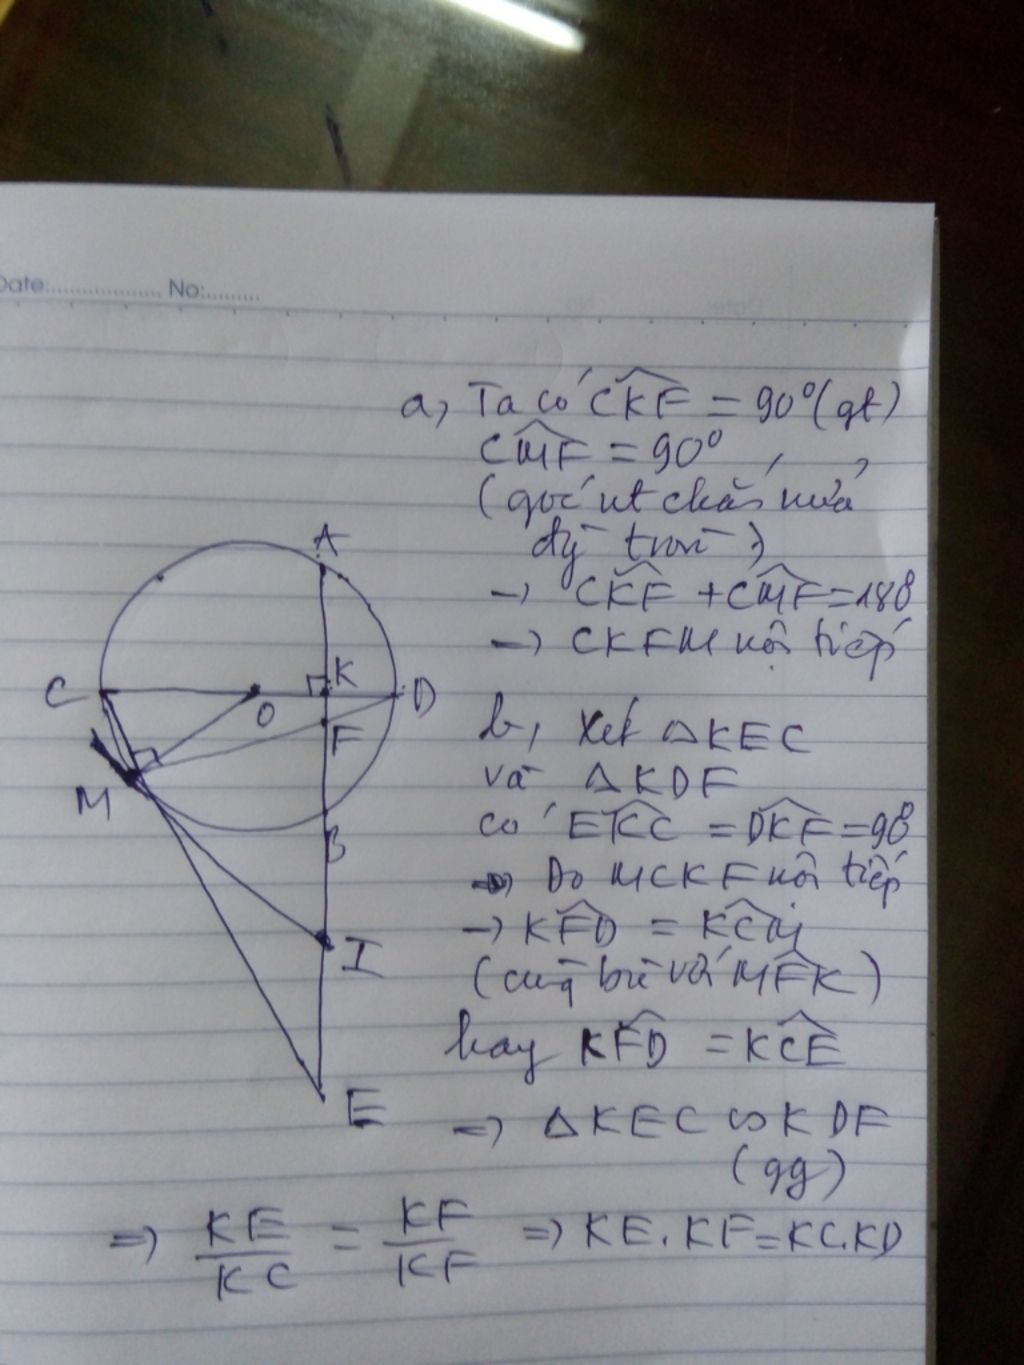 Date:.................. No:.........
a, Ta có CKF = 90° (gt)
CMF = 90°
(góc nt chắn nửa
đg tròn)
→ CKF + CMF = 180
→ CKFM nội tiếp
b, Xét ΔKEC
và ΔKDF
có EKC = DKF = 90
Do MCKF nội tiếp
→ KFD = KCM
(cùng bù với MFK)
hay KFD = KCE
⇒ ΔKEC ∽ KDF
(gg)
⇒ KE/KC = KF/KF ⇒ KE.KF = KC.KD
A
C
O
K
D
F
M
B
I
E